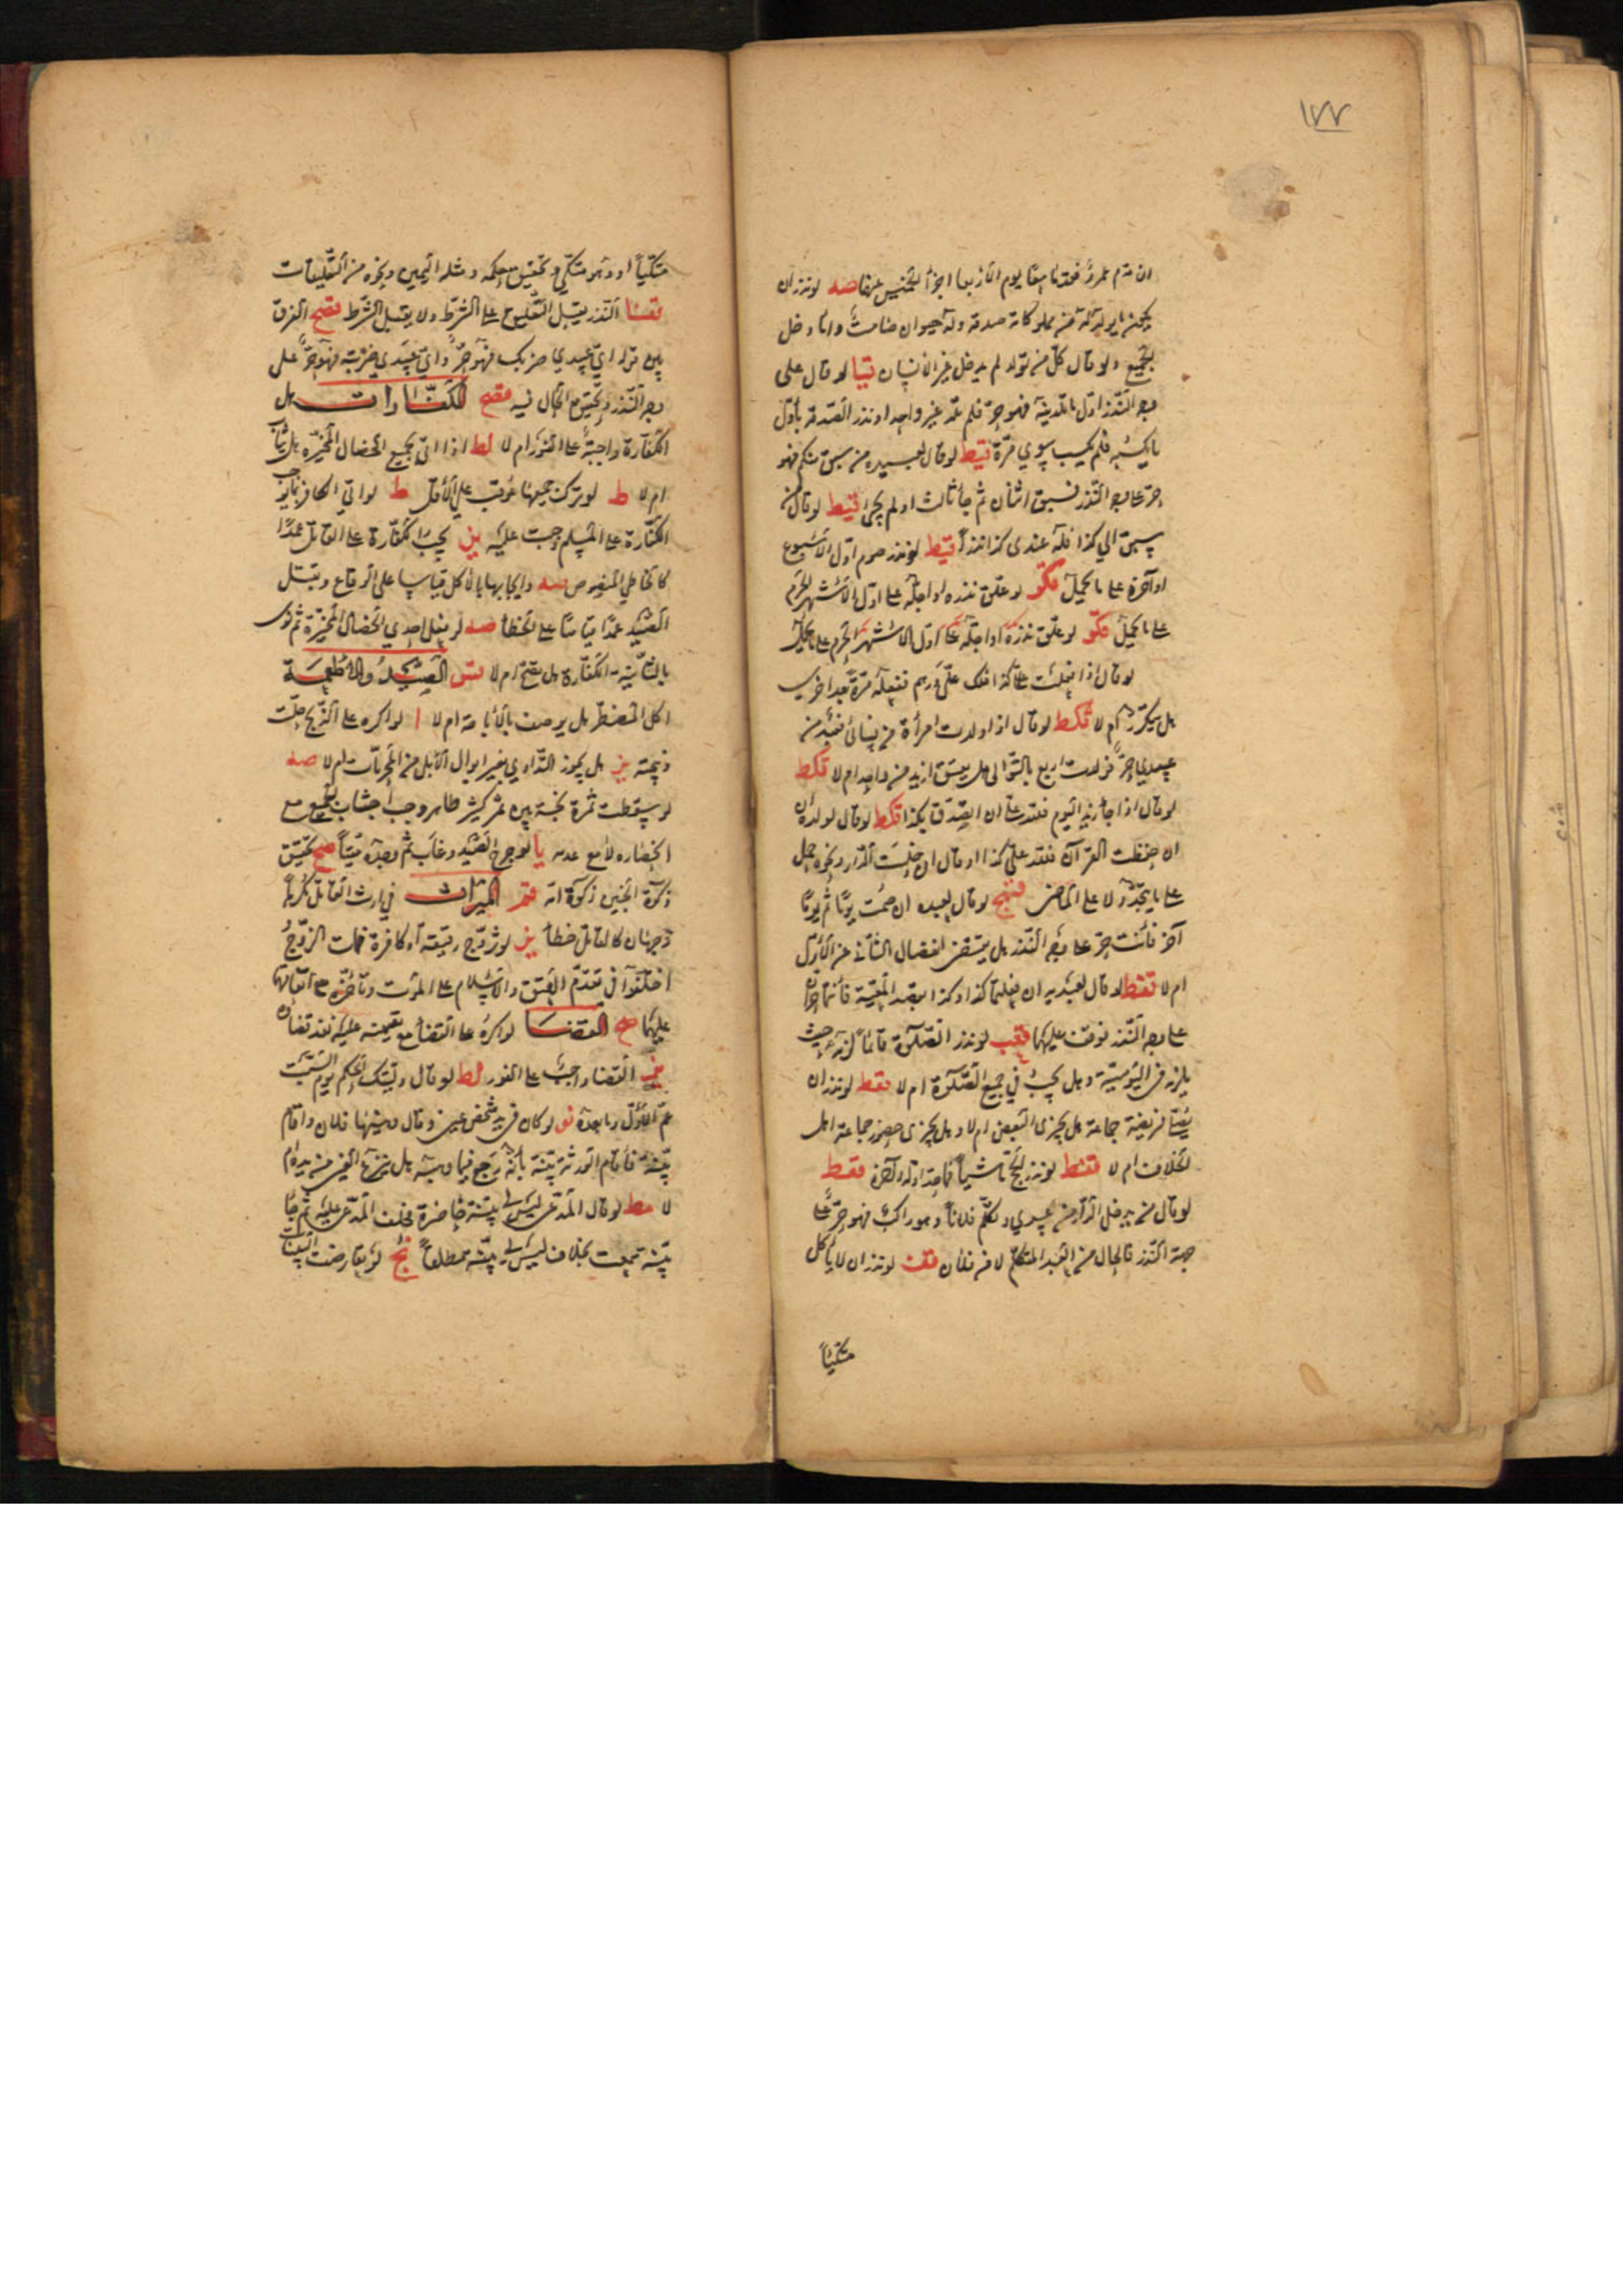 ١٧٧
ان قدم عمرو فقدما معا يوم الاربعا اجزأ الخميس عنهما صه لو نذر ان
يكون ما يولد له من مملوكاته صدقة وله حيوان صامت وانا دخل
الجميع ولو قال كل من تولد لم يدخل غير الانسان قيا لو قال على
وجه النذر اول ما تلدينه فهو حر فلم تلد غير واحد او نذر الصدقة باول
ما يكسبه فلم يكسب سوى مرة قيط لو قال لعبيده من سبق منكم فهو
حر على وجه النذر فسبق اثنان ثم جاء ثالث او لم يجئ قيط لو قال من
سبق الى كذا فله عندى كذا نذرا قيط لو نذر صوم اول الاسبوع
او آخره على ما يحمل قكو لو علق نذره او اجله على اول الاشهر الحرم
على ما يحمل قكو لو علق نذره او اجله على اول الاشهر الحرم على ما يحمل
لو قال اذا فعلت كذا فلك على درهم ففعله مرة بعد اخرى
هل يتكرر ام لا قكط لو قال اذا ولدت امرأة من نسائى فعبد من
عبيدى حر فولدت اربع بالتوالى هل يعتق ازيد من واحد ام لا قكط
لو قال اذا جاء زيد اليوم فلله على ان اتصدق بكذا قكط لو قال لولده
ان حفظت القرآن فلله على كذا او قال ان جلست الدار ونحوه حمل
على ما يتجدد لا على الماضى لو قال لعبده ان صمت يوما ثم يوما
آخر فانت حر على وجه النذر هل يقتضى انفصال الثانى عن الاول
ام لا قفط لو قال لعبديه ان فعلتما كذا وكذا بقصد المعية فانتما حران
على وجه النذر توقف عليهما لو نذر الصلوة قائما لزمه حيث
يلزمه فى اليومية وهل يجب فى جميع الصلوة ام لا قفط لو نذر ان
يصلى فريضة جماعة هل يجزى البعض ام لا وهل يجزى حضور جماعة اهل
الخلاف ام لا قفط لو نذر الحج ماشيا فما حد اوله وآخره قفط
لو قال من يدخل الدار من عبيدى وكلم فلانا وهو راكب فهو حر على
جهة النذر فالحال من العبد المتكلم لا من فلان قفت لو نذر ان لا يأكل
متكئا
متكئا او وهو متكئ وتحقيق حكمه ومثله اليمين ونحوه من التعليقات
النذر يقبل التعليق على الشرط ولا يقبل الشرط قصح الفرق
بين قوله اى عبيدى ضربك فهو حر واى عبيدى ضربته فهو حر على
وجه النذر وتحقيق الحال فيه الكفارات هل
الكفارة واجبة على الفور ام لا لط اذا اتى بجميع الخصال المخيرة هل يثاب
ام لا ط لو ترك جميعها عوقب على الاقل ط لو اتى الكافر بما يوجب
الكفارة على المسلم وجبت عليه يز يجب الكفارة على القاتل عمدا
كالخاطى المنصوص سه وايجابها بالاكل قياسا على الوقاع وبقتل
الصيد عمدا قياسا على الخطأ صه لو فعل احدى الخصال المخيرة ثم نوى
بالثانية الكفارة هل تصح ام لا الصيد والاطعمة
اكل المضطر هل يوصف بالاباحة ام لا ا لو اكره على الذبح حلت
ذبيحته يز هل يجوز التداوى بغير ابوال الابل من المحرمات ام لا صه
لو سقطت ثمرة نجسة بين ثمر كثير طاهر وجب اجتناب الجميع مع
انحصاره لا مع عدمه يا لو جرح الصيد وغاب ثم وجده ميتا صح تحقيق
ذكوة الجنين ذكوة امه الميراث فى ارث القاتل كرها
وجهان كالقاتل خطأ يز لو تزوج رقيقة او كافرة فمات الزوج
اختلفوا فى تقدم العتق والاسلام على الموت وتأخره مع اتفاقهما
عليهما صح القضا لو اكره على القضاء مع تعيينه عليه نفذ قضاؤه
يز القضاء واجب على الفور لط لو قال وليتك الحكم يوم السبت
عم الاول وما بعده نو لو كان فى يد شخص عين وقال وهبنيها فلان واقام
بينة فاقام الورثة بينة بانه رجع فيما وهبه هل ينزع العين من يده ام
لا مط لو قال المدعى ليس لى بينة حاضرة فحلف المدعى عليه ثم جاء
بينة سمعت بخلاف ليس لى بينة مطلقا نح لو تعارضت البينات